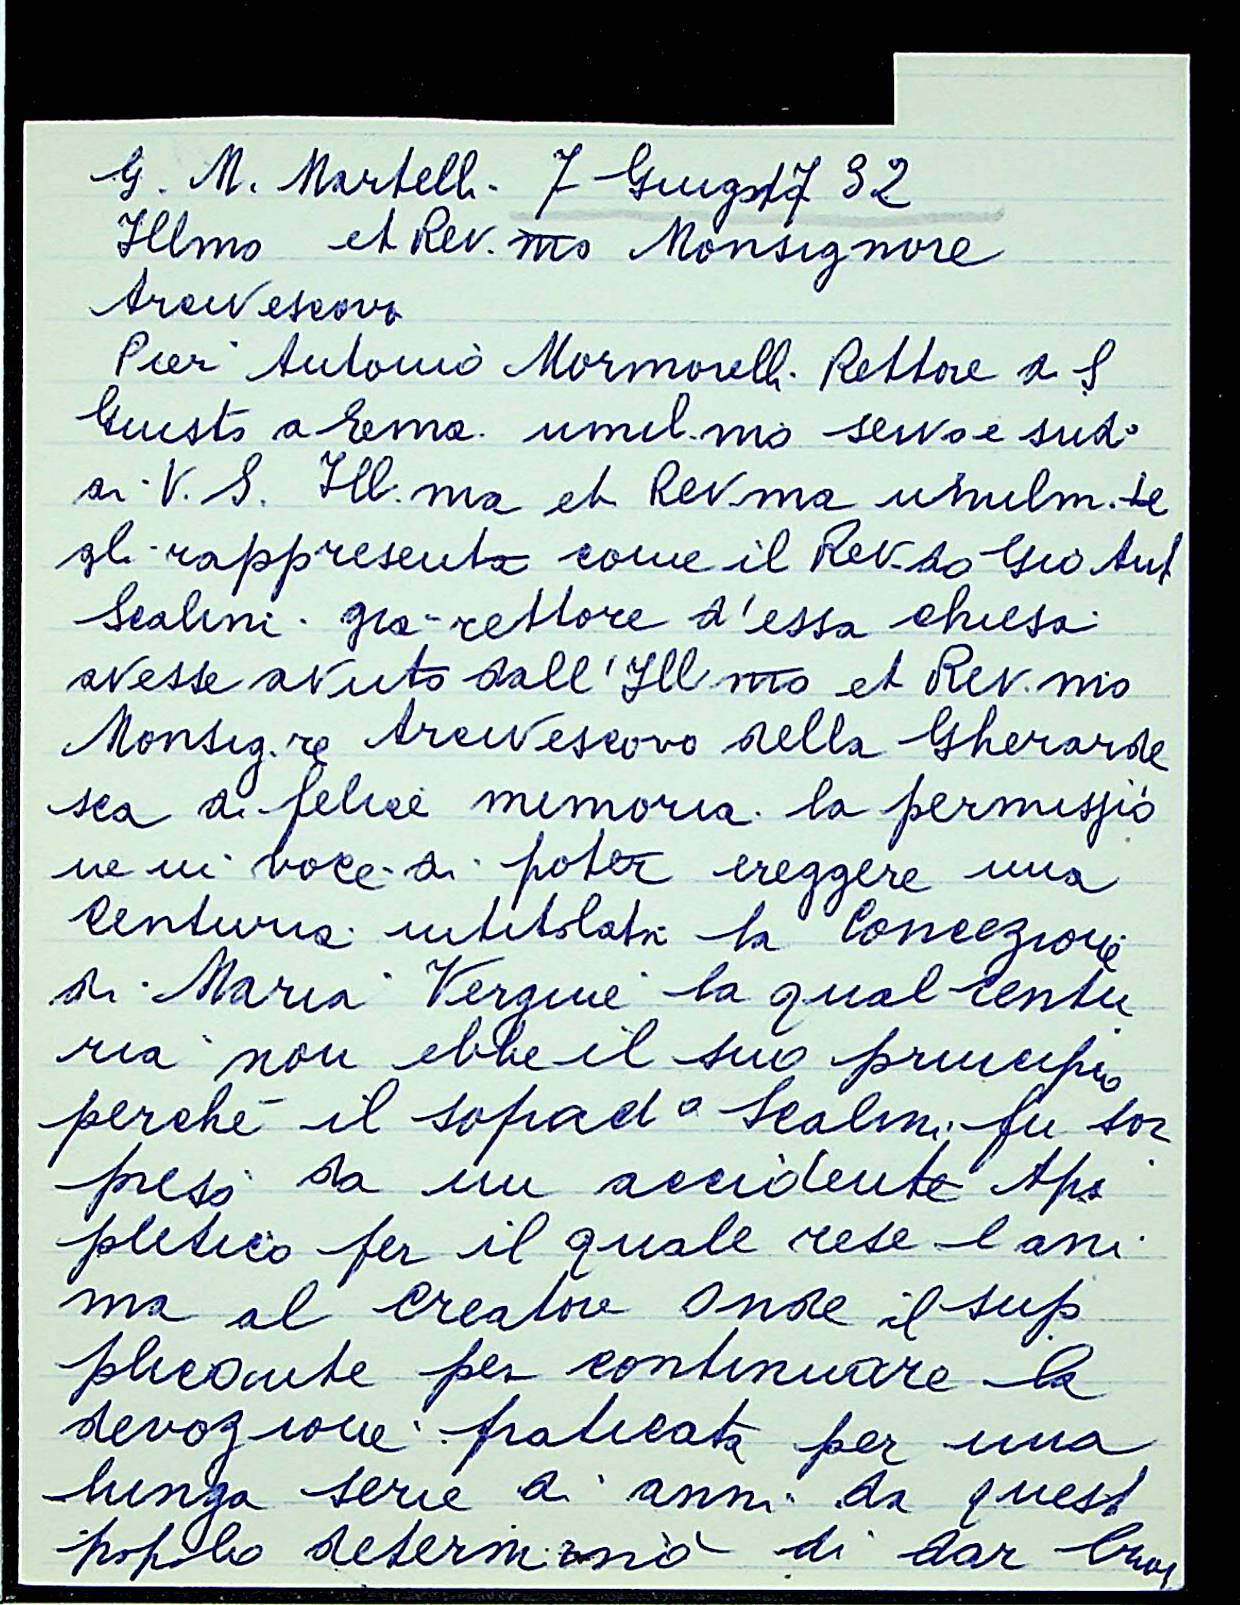 G. M. Martelli. 7 Giugno 1732
Illmo et Rev.mo Monsignore
Arcivescovo
Pier Antonio Mormorelli Rettore di S
Giusto a Ema. umil.mo servo e sud.o
di V. S. Ill.ma et Rev.ma umilm.te
gli rappresenta come il Rev.do Gio Ant
Scalini già rettore d'essa chiesa
avesse avuto dall'Ill mo et Rev. mo
Monsig.re Arcivescovo della Gherarde
sca di felice memoria la permissio
ne in voce di poter ereggere una
Centuria intitolata la Concezione
di Maria Vergine la qual centu
ria non ebbe il suo principio
perché il soprad.o Scalini fu sor
preso da un accidente Apo
pletico per il quale rese l ani
ma al Creatore Onde il sup
plicante per continuare la
devozione praticata per una
lunga serie di anni da quest
popolo determinò di dar